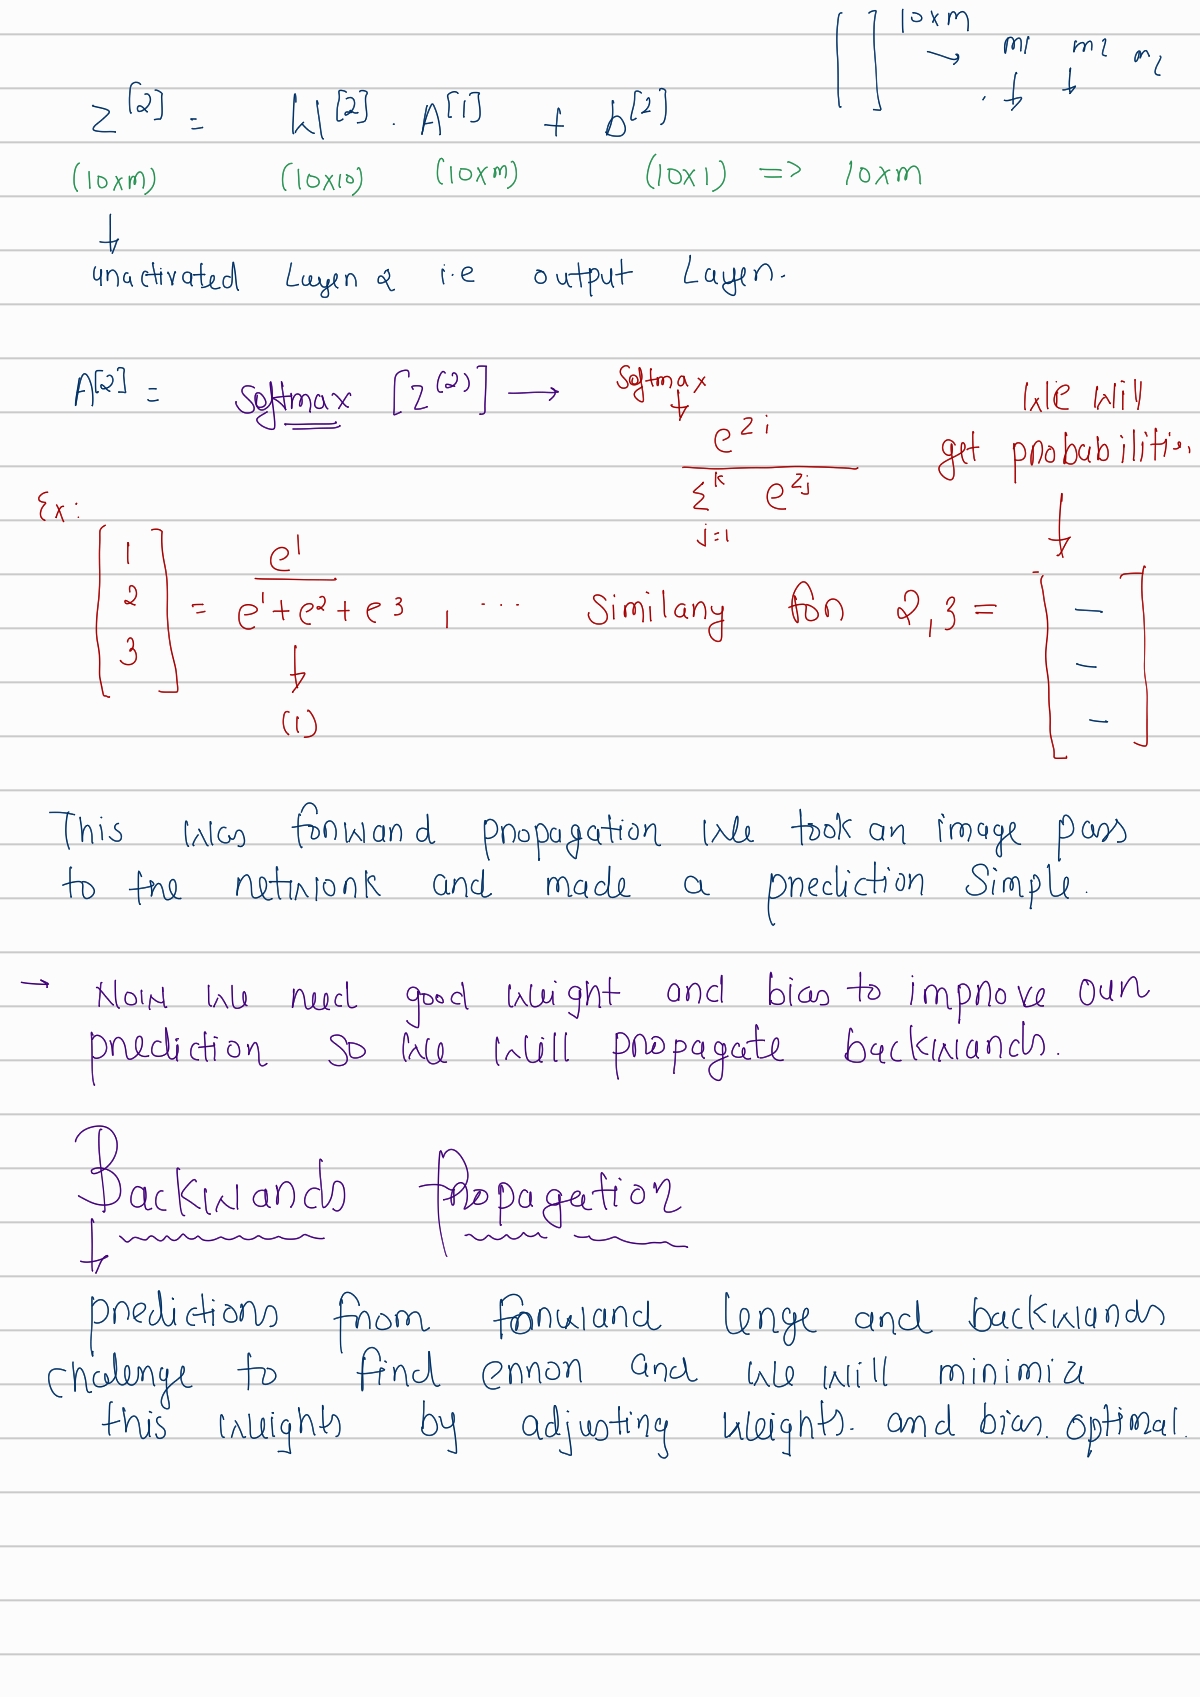 [ ] 10xm
→ m1 m2 m2
Z[2] = W[2] . A[1] + b[2]
(10xm) (10x10) (10xm) (10x1) => 10xm
↓
unactivated Layer 2 i.e output Layer.
A[2] = Softmax [Z(2)] → Softmax
↓
e^zi
Σ^k e^zj
j=1
We Will
get probabilities.
↓
Ex:
[1 2 3] = e^1 / e^1 + e^2 + e^3 , ... Similary for 2,3 = [– – –]
↓
(1)
This was forward propagation we took an image pass
to the network and made a prediction Simple.
→ Now we need good weight and bias to improve our
prediction so we will propagate backwards.
Backwards Propagation
↓
predictions from forward lenge and backwards
chalenge to find error and we will minimize
this weights by adjusting weights. and bias. optimal.